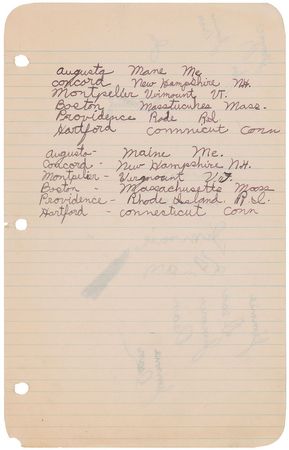 Augusta Mane Me
concord New Hampshire NH.
Montpeller Virmount VT.
Boston Massticuhes Mass.
Providence Rode Rd
Hartford Connnicut Conn
Augusta- Maine Me.
Concord - New Hampshire N.H.
Montpiler - Vurgmount V.T.
Boston - Massachusetts Mass
Providence - Rhode Island R I.
Hartford - connesticut Conn